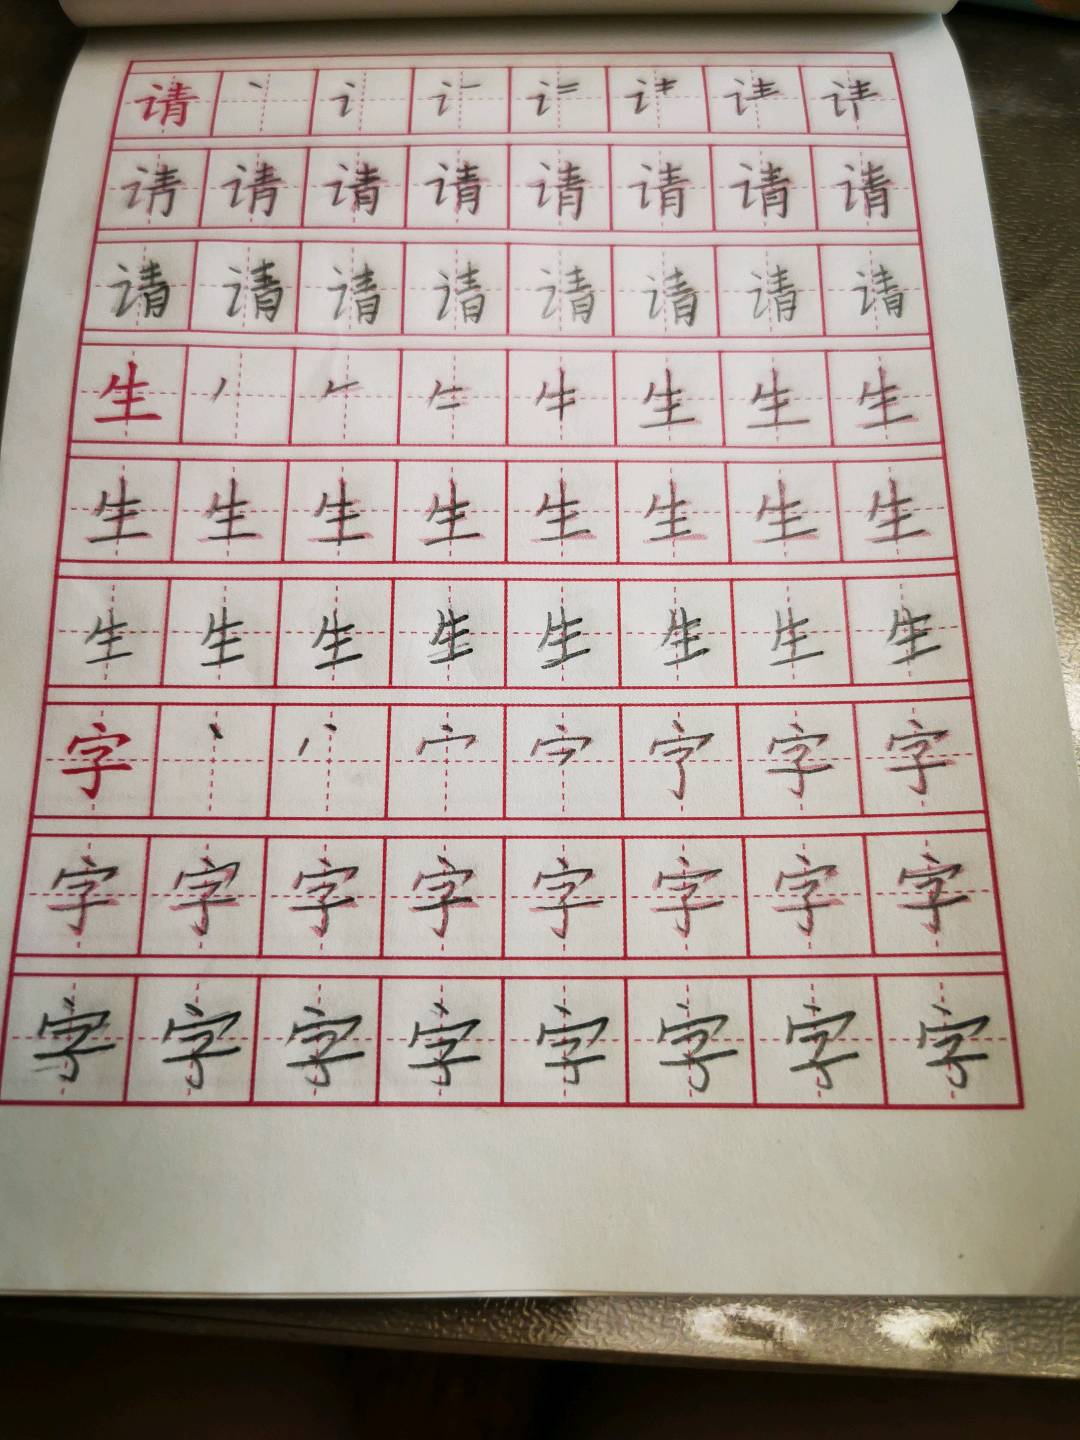 请 丶 讠
请 请 请 请 请 请 请
请 请 请 请 请 请 请 请
生 丿 𠂉 牛 生 生 生
生 生 生 生 生 生 生 生
生 生 生 生 生 生 生 生
字 丶 宀 字 字
字 字 字 字 字 字 字 字
字 字 字 字 字 字 字 字